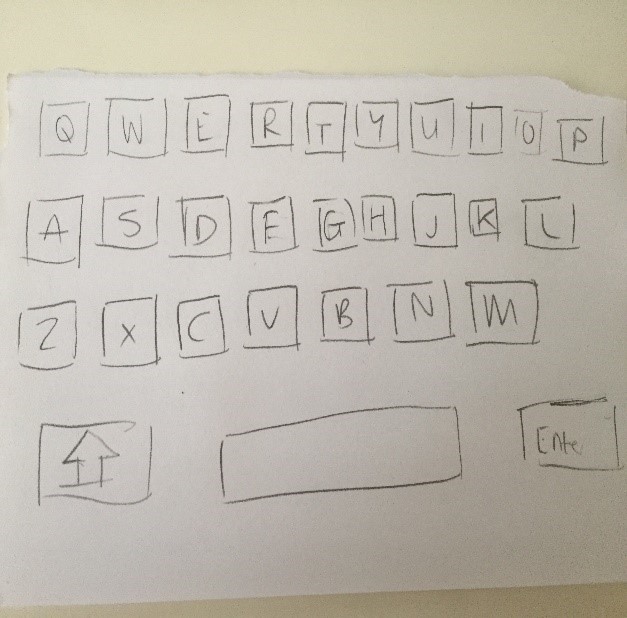 Q W E R T Y U I O P
A S D E G H J K L
Z X C V B N M
Ente